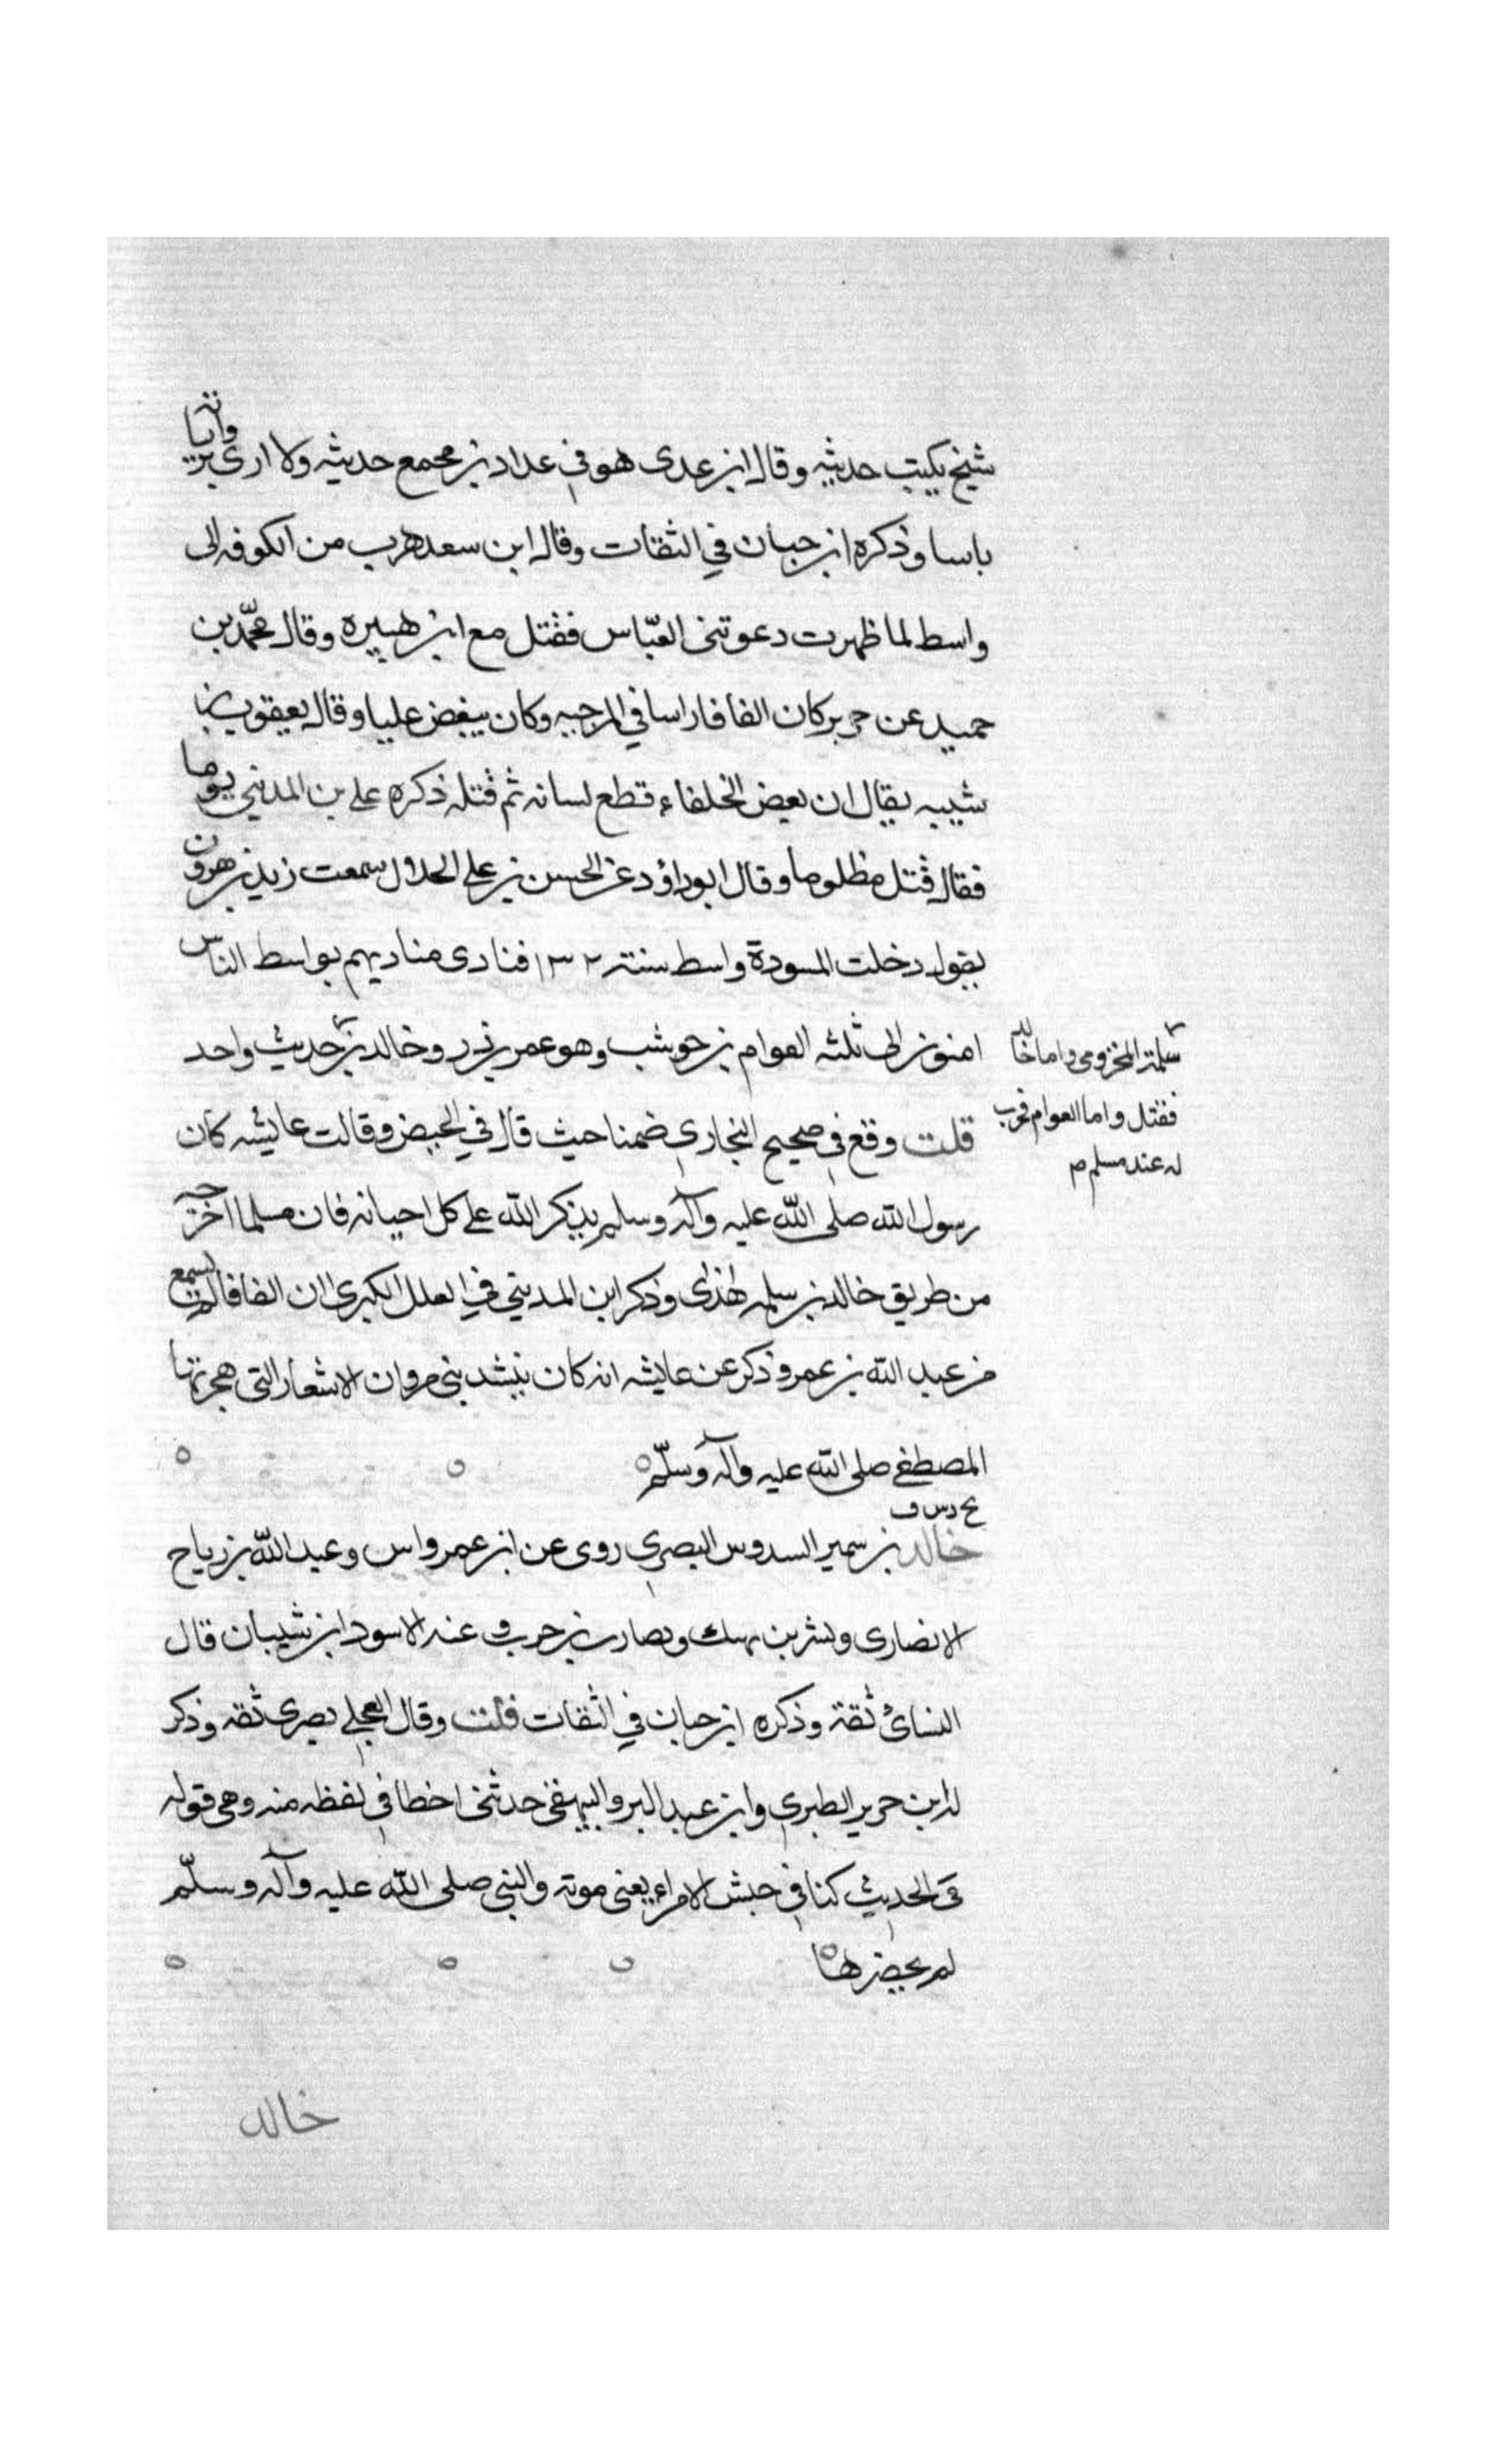 شيخ يكتب حديثه وقال ابن عدى هو في عداد من يجمع حديثه ولا ارى بروايته
باسا وذكره ابن حبان في الثقات وقال ابن سعد هرب من الكوفه الى
واسط لما ظهرت دعوتنى العبّاس فقتل مع ابن هبيره وقال محمّد بن
حميد عن جرير كان الفافا راسا في المرجيه وكان يبغض عليا وقال يعقوب بن
شيبه يقال ان بعض الخلفاء قطع لسانه ثم قتله ذكره على بن المديني يوما
فقال قتل مظلوما وقال ابو داؤد عن الحسن بن على الحلال سمعت زيد بن هرون
يقول دخلت المسودة واسط سنة ١٣٢ فنادى مناديهم بواسط الناس
امنون الى ثلثه العوام بن حوشب وهو عمر بن ذر وخالد بن حديث واحد
سلمة المخزومى واما خالد
فقتل واما العوام فهرب
له عند مسلم م
قلت وقع في صحيح البخارى ضمنا حيث قال في الحيض وقالت عايشه كان
رسول الله صلى الله عليه وآله وسلم يذكر الله على كل احيانه فان مسلما اخرجه
من طريق خالد بن سلمه هذا وذكر ابن المديني في العلل الكبرى ان الفافا لم يسمع
من عبد الله بن عمر وذكر عن عايشه انه كان ينشد بنى مروان الاشعار التى هجى بها
المصطفى صلى الله عليه وآله وسلّم
خ د س ق
خالد بن سمير السدوس البصرى روى عن ابن عمر واس وعبد الله بن رباح
الانصارى وبشر بن نهيك ومضارب بن حرب وعنه الاسود ابن شيبان قال
النسائ ثقة وذكره ابن حبان في الثقات قلت وقال العجلى بصرى ثقه وذكر
له ابن جرير الطبرى وابن عبد البر والبيهقى حدثنى اخطا في لفظه منه وهى قوله
فى الحديث كنا فى جيش الامراء يعنى موته والنبي صلى الله عليه وآله وسلّم
لم يحضرها
خالد